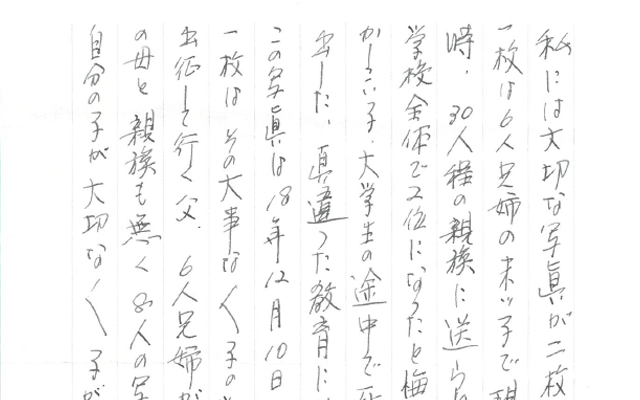 私には大切な写真が二枚
一枚は6人兄姉の末ッ子で
時、30人程の親族に送ら
学校全体で2位になったと悔
かしこい子、大学生の途中で
出した、真違った教育に
この写真は18年12月10日
一枚はその大事な〱子の
出征して行く父、6人兄姉が
の母と親族も無く8人の写
自分の子が大切な〱子が